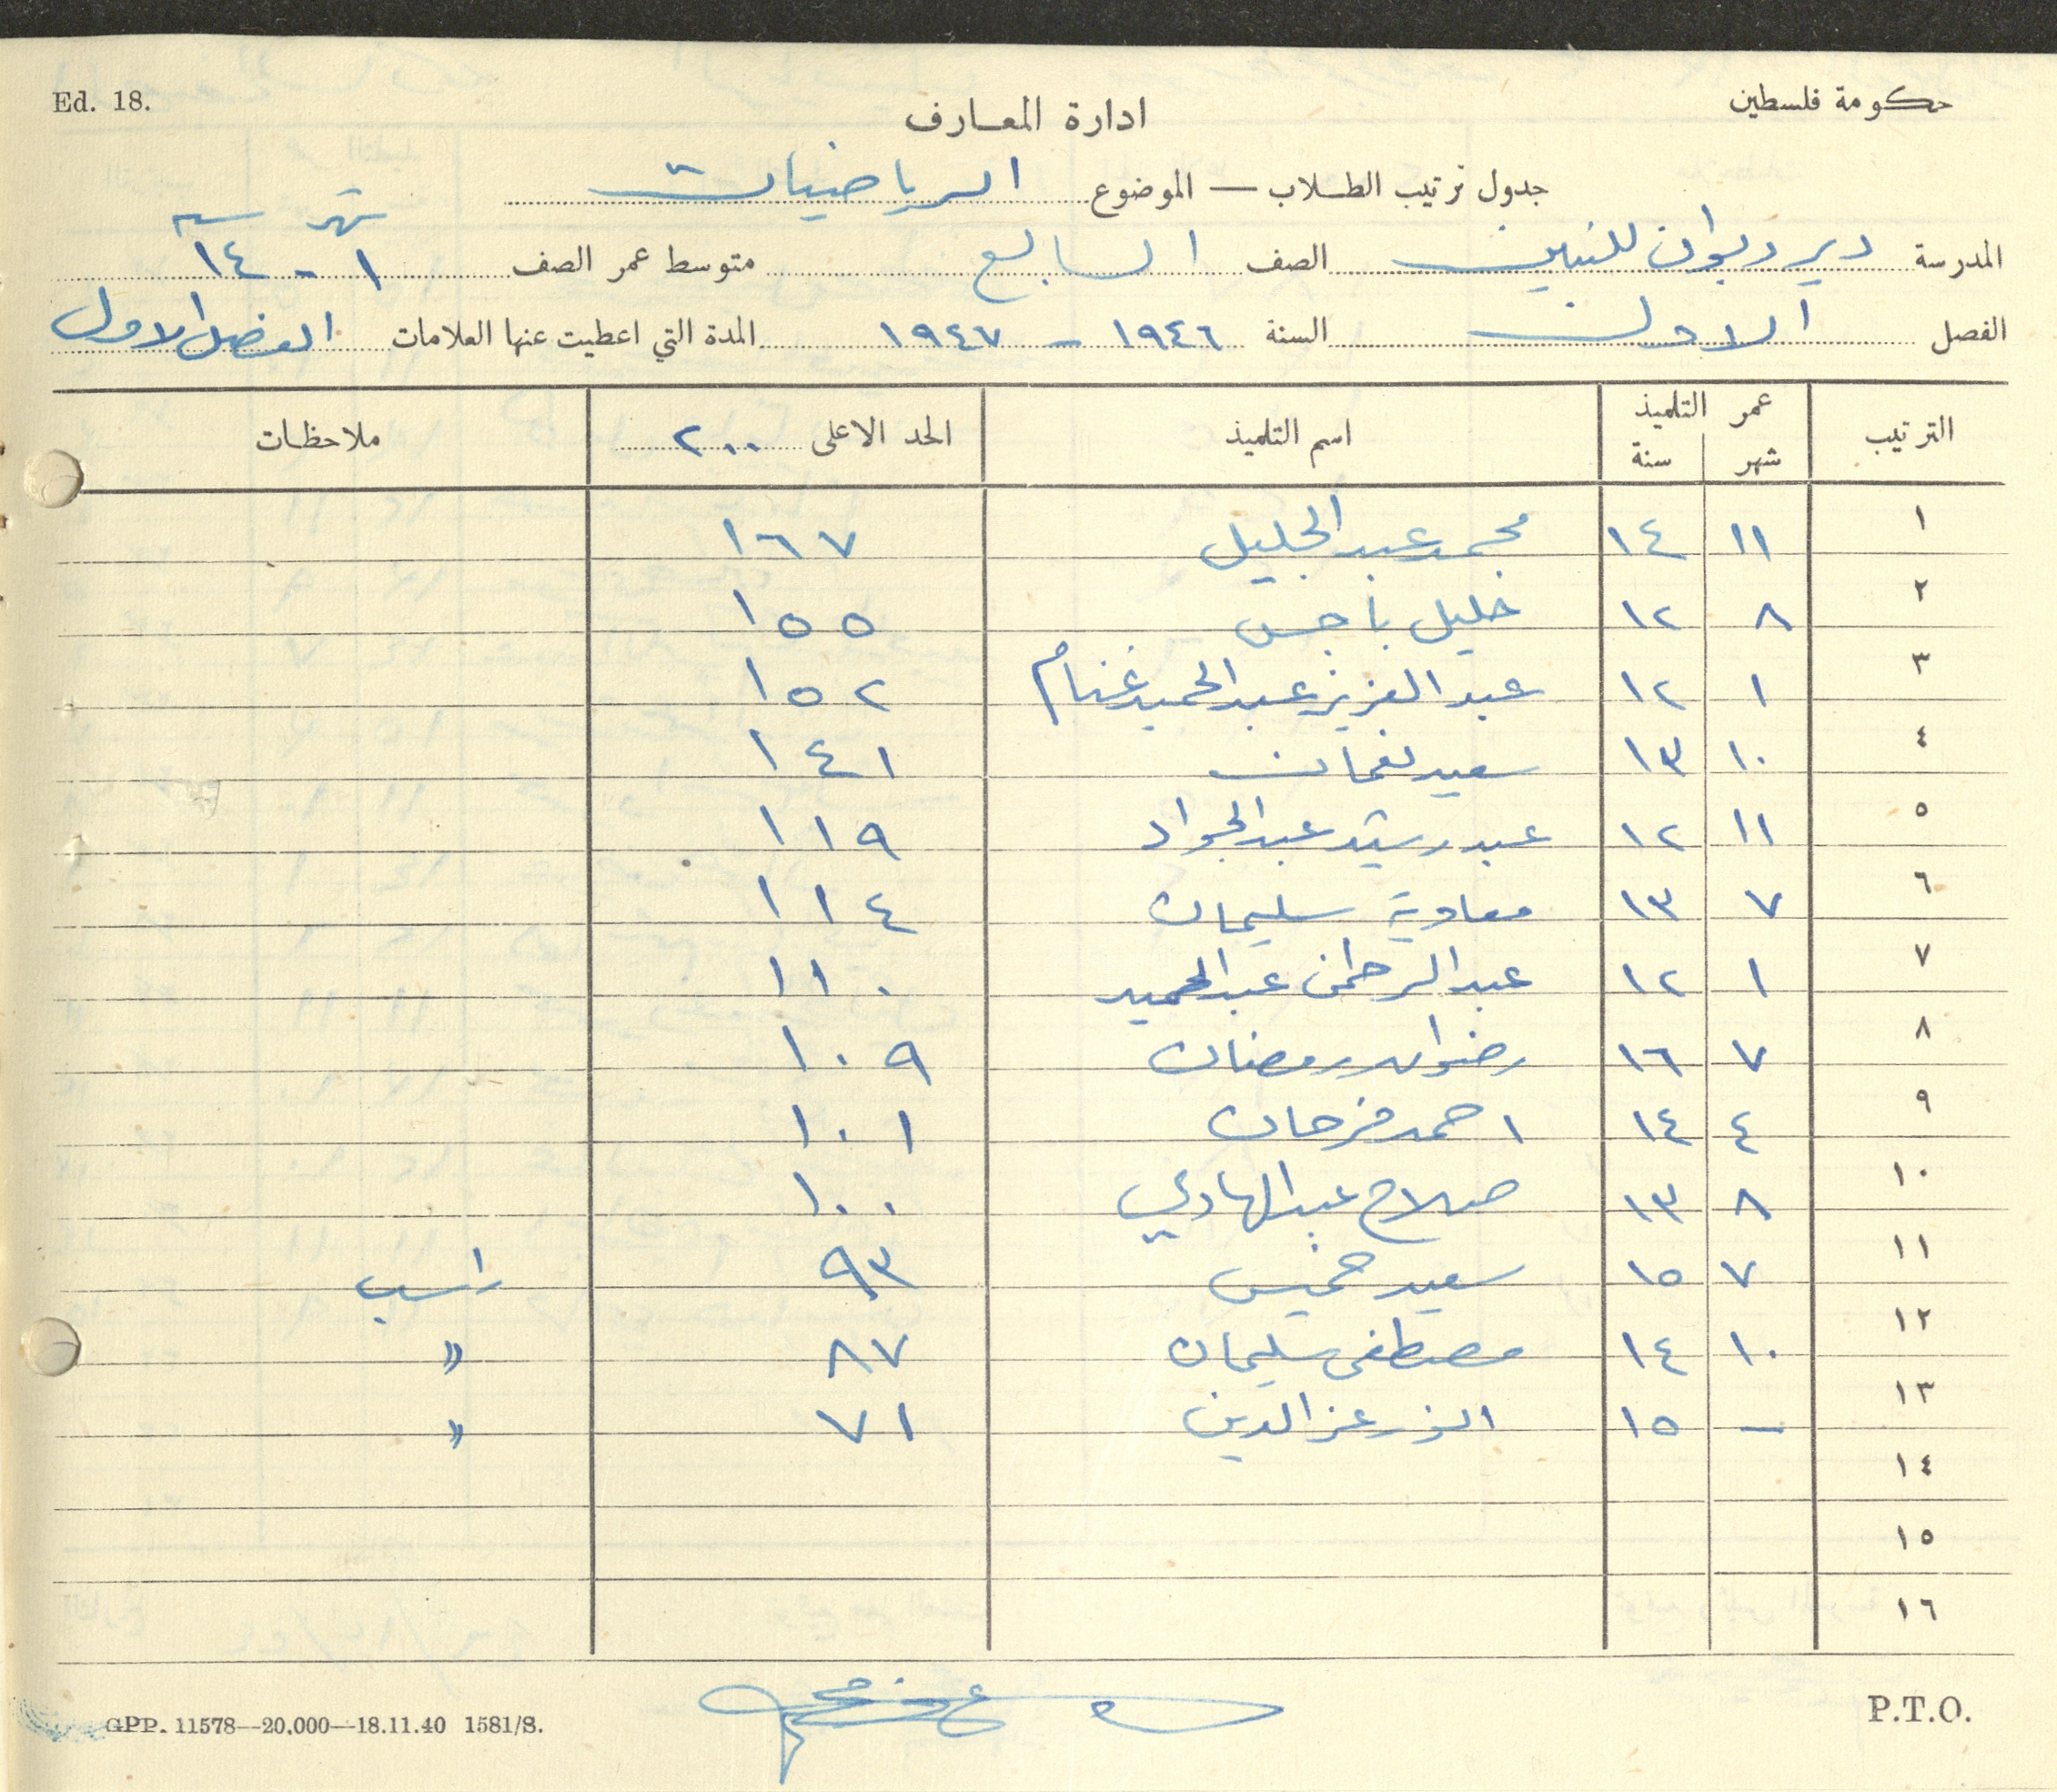 Ed. 18. حكومة فلسطين
ادارة المعارف
جدول ترتيب الطلاب — الموضوع الرياضيات
المدرسة دير ديوان للبنين الصف السابع متوسط عمر الصف شهر ١ - سنة ١٤
الفصل الاول السنة ١٩٤٦ - ١٩٤٧ المدة التي اعطيت عنها العلامات الفصل الاول
الترتيب عمر التلميذ شهر سنة اسم التلميذ الحد الاعلى ٢٠٠ ملاحظات
١ ١١ ١٤ محمد عبد الجليل ١٦٧
٢ ٨ ١٢ خليل باجس ١٥٥
٣ ١ ١٢ عبد العزيز عبد الحميد غنام ١٥٢
٤ ١٠ ١٣ سعيد نعمان ١٤١
٥ ١١ ١٢ عبد رشيد عبد الجواد ١١٩
٦ ٧ ١٣ معاوية سليمان ١١٤
٧ ١ ١٢ عبد الرحمن عبد الحميد ١١٠
٨ ٧ ١٦ رضوان رمضان ١٠٩
٩ ٤ ١٤ احمد فرحان ١٠١
١٠ ٨ ١٣ صلاح عبد الهادي ١٠٠
١١ ٧ ١٥ سعيد خميس ٩٣ راسب
١٢ ١٠ ١٤ مصطفى سليمان ٨٧ "
١٣ – ١٥ انور عز الدين ٧١ "
١٤
١٥
١٦
GPP. 11578—20,000—18.11.40 1581/S. P.T.O.